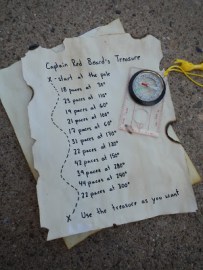 Captain Red Beard's Treasure
X - start at the pole
18 paces at 30°
23 paces at 110°
14 paces at 60°
21 paces at 100°
17 paces at 60°
31 paces at 170°
22 paces at 120°
42 paces at 150°
39 paces at 280°
44 paces at 240°
22 paces at 300°
X Use the treasure as you want